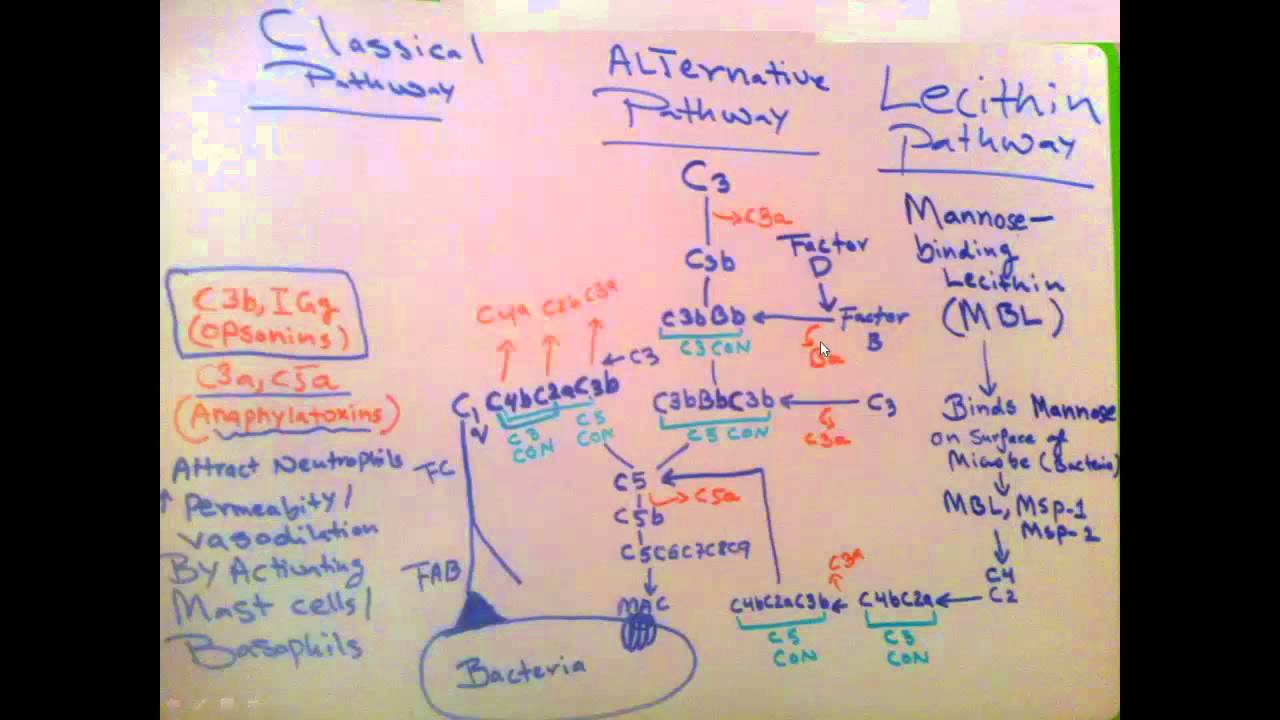 Classical
Pathway
ALTernative
Pathway
Lecithin
Pathway
C3
C3a
C3b
Factor
D
C3bBb
Factor
B
Ba
C3 CON
C3bBbC3b
C3
C3a
C5 CON
C4a C2b C3a
C3
C1 C4bC2aC3b
C3
CON
C5
CON
FC
FAB
C5
C5a
C5b
C5C6C7C8C9
MAC
Bacteria
C3b, IGg
(opsonins)
C3a, C5a
(Anaphylatoxins)
Attract Neutrophils
↑ Permeabity/
vasodilation
By Activating
Mast cells/
Basophils
Mannose-
binding
Lecithin
(MBL)
Binds Mannose
on Surface of
Microbe (Bacteria)
MBL, Msp-1
Msp-2
C4
C2
C4bC2a
C3
CON
C3a
C4bC2aC3b
C5
CON